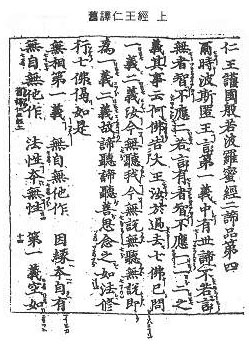 舊譯仁王經 上
仁王護國般若波羅蜜經二諦品第四
爾時波斯匿王言第一義中有世諦不若言
無者智不應二若言有者智不應一一二之
義其事云何佛告大王汝於過去七佛已問
一義二義汝今無聽我今無說無聽無說即
為一義二義故諦聽諦聽善思念之如法修
行七佛偈如是
無相第一義 無自無他作 因緣本自有
無自無他作 法性本無性 第一義空如
十四